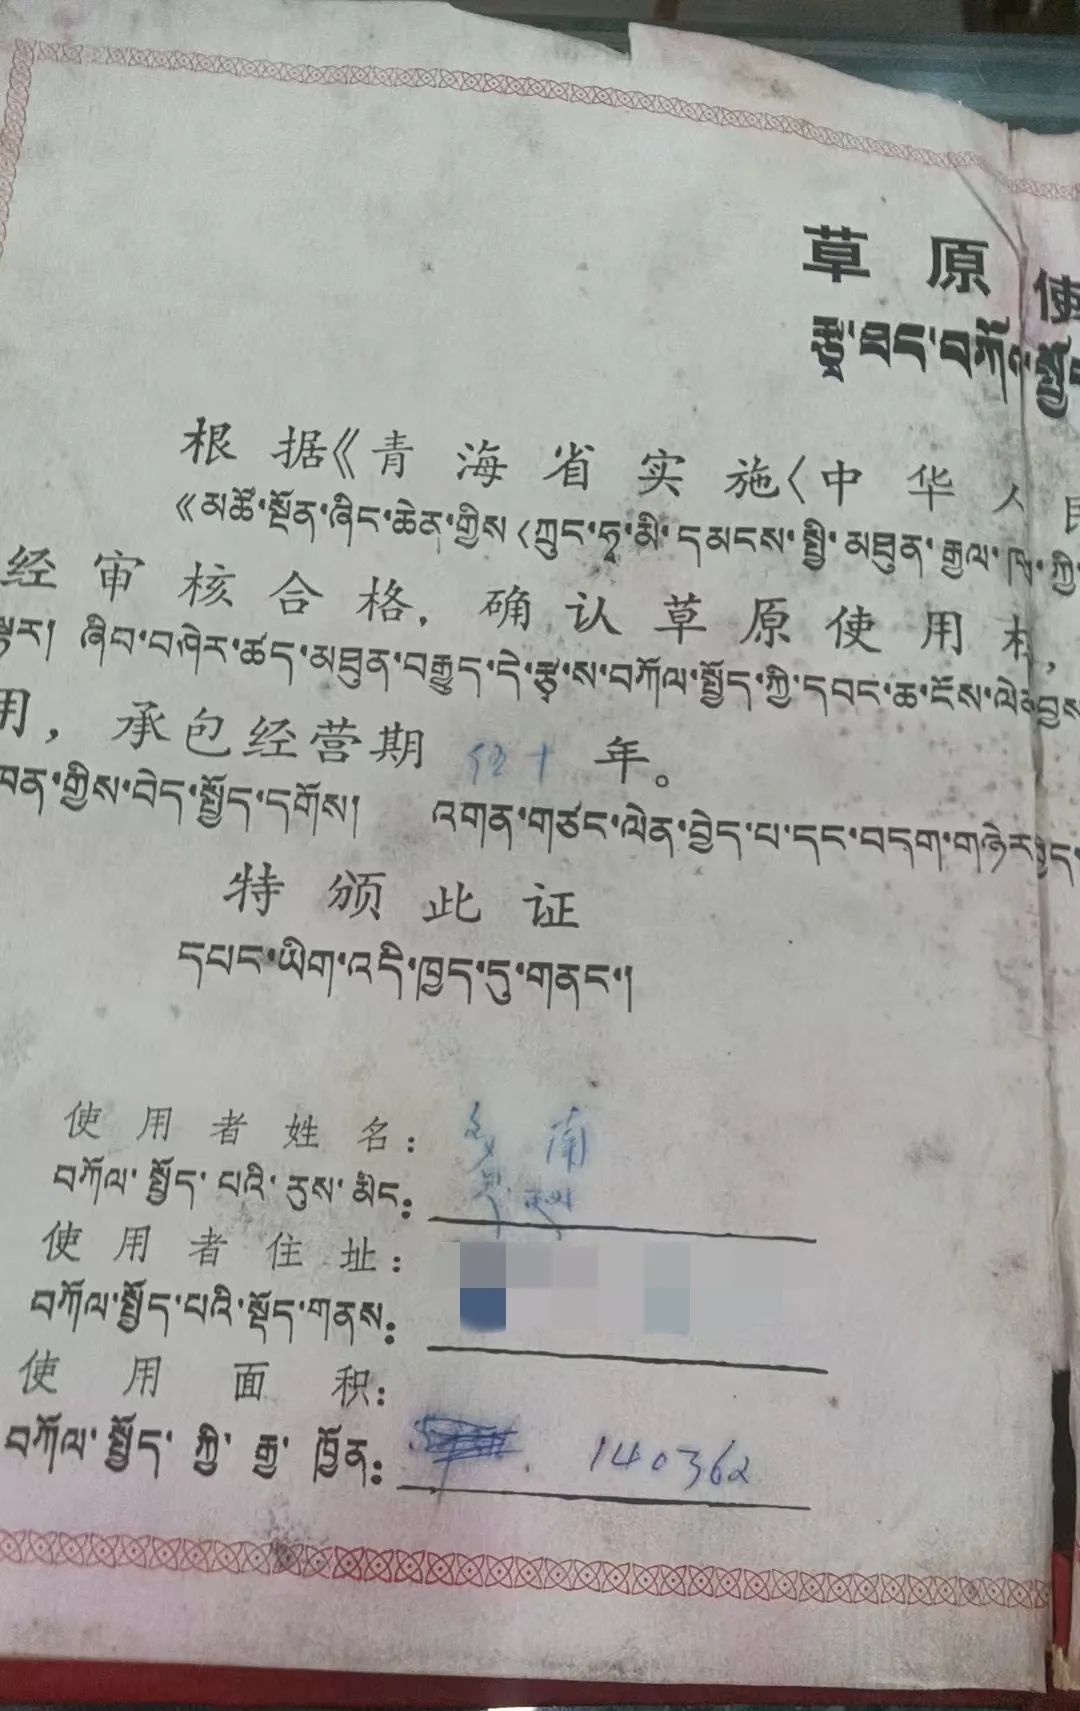 草原使
རྩྭ་ཐང་བཀོལ་སྤྱོད
根据《青海省实施〈中华人民
《མཚོ་སྔོན་ཞིང་ཆེན་གྱིས〈ཀྲུང་ཧྭ་མི་དམངས་སྤྱི་མཐུན་རྒྱལ་ཁབ་ཀྱི་
经审核合格，确认草原使用权，
ལྟར། ཞིབ་བཤེར་ཚད་མཐུན་བརྒྱུད་དེ་རྩྭ་ས་བཀོལ་སྤྱོད་ཀྱི་དབང་ཆ་ངོས་ལེན་བྱས
用，承包经营期 年。
ཁན་གྱིས་བེད་སྤྱོད་དགོས། འགན་གཙང་ལེན་བྱེད་པ་དང་བདག་གཉེར་བྱེད་
特颁此证
དཔང་ཡིག་འདི་ཁྱད་དུ་གནང་།
使用者姓名： 南
བཀོལ་སྤྱོད་པའི་རུས་མིང：
使用者住址：
བཀོལ་སྤྱོད་པའི་སྡོད་གནས：
使用面积：
བཀོལ་སྤྱོད་ཀྱི་རྒྱ་ཁྱོན： 140362